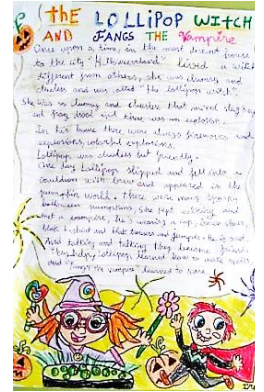 the LOLLIPOP WITCH
AND FANGS THE Vampire
Once upon a time, in the most distant house
to the city "Halloweenland" lived a witch
different from others, she was clumsy and
clueless and was called "the lollipop witch".
She was so clumsy and clueless that mixed
frog and there was an explosion.
In his home there were always fireworks and
explosions, colorful explosions.
Lollipop was clueless but friendly.
One day Lollipop slipped and fell into a
cauldron with brew and appeared in the
pumpkin world. There were many spooky
halloween pumpkins, she kept walking and
met a vampire, he's wearing a
that
And talking and talking they became friends
learned how to make spells
and Fangs the vampire learned to